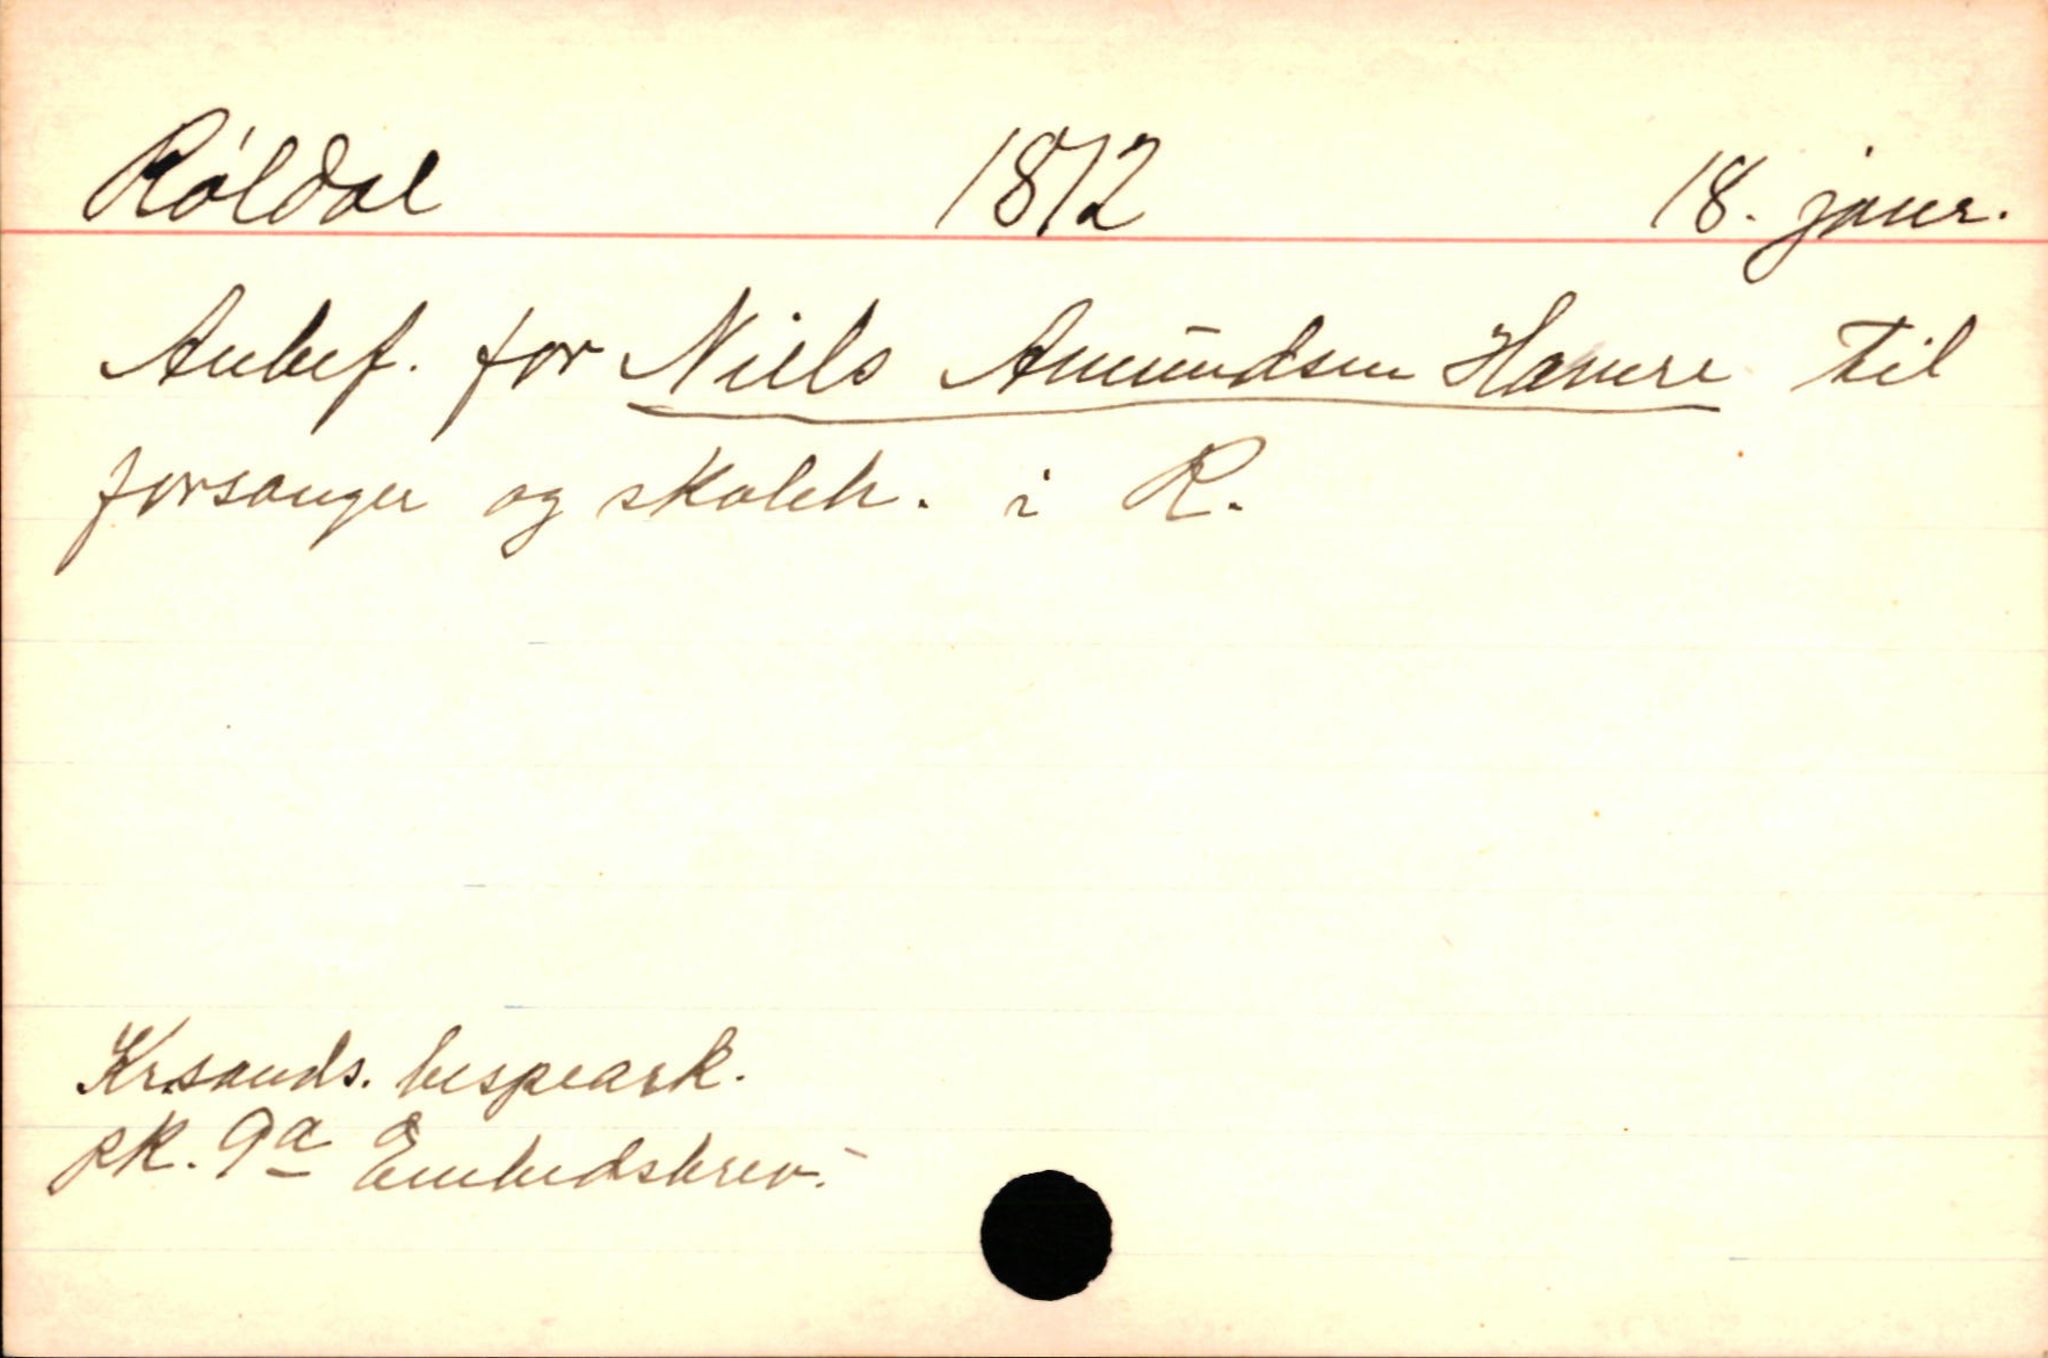 Röldal 1872 18. janr.
Anbef. for Niels Amundsen Hamre til
forsanger og skoleh. i R.
Kr.sands. bispeark.
pk. 9a Embedsbrev.